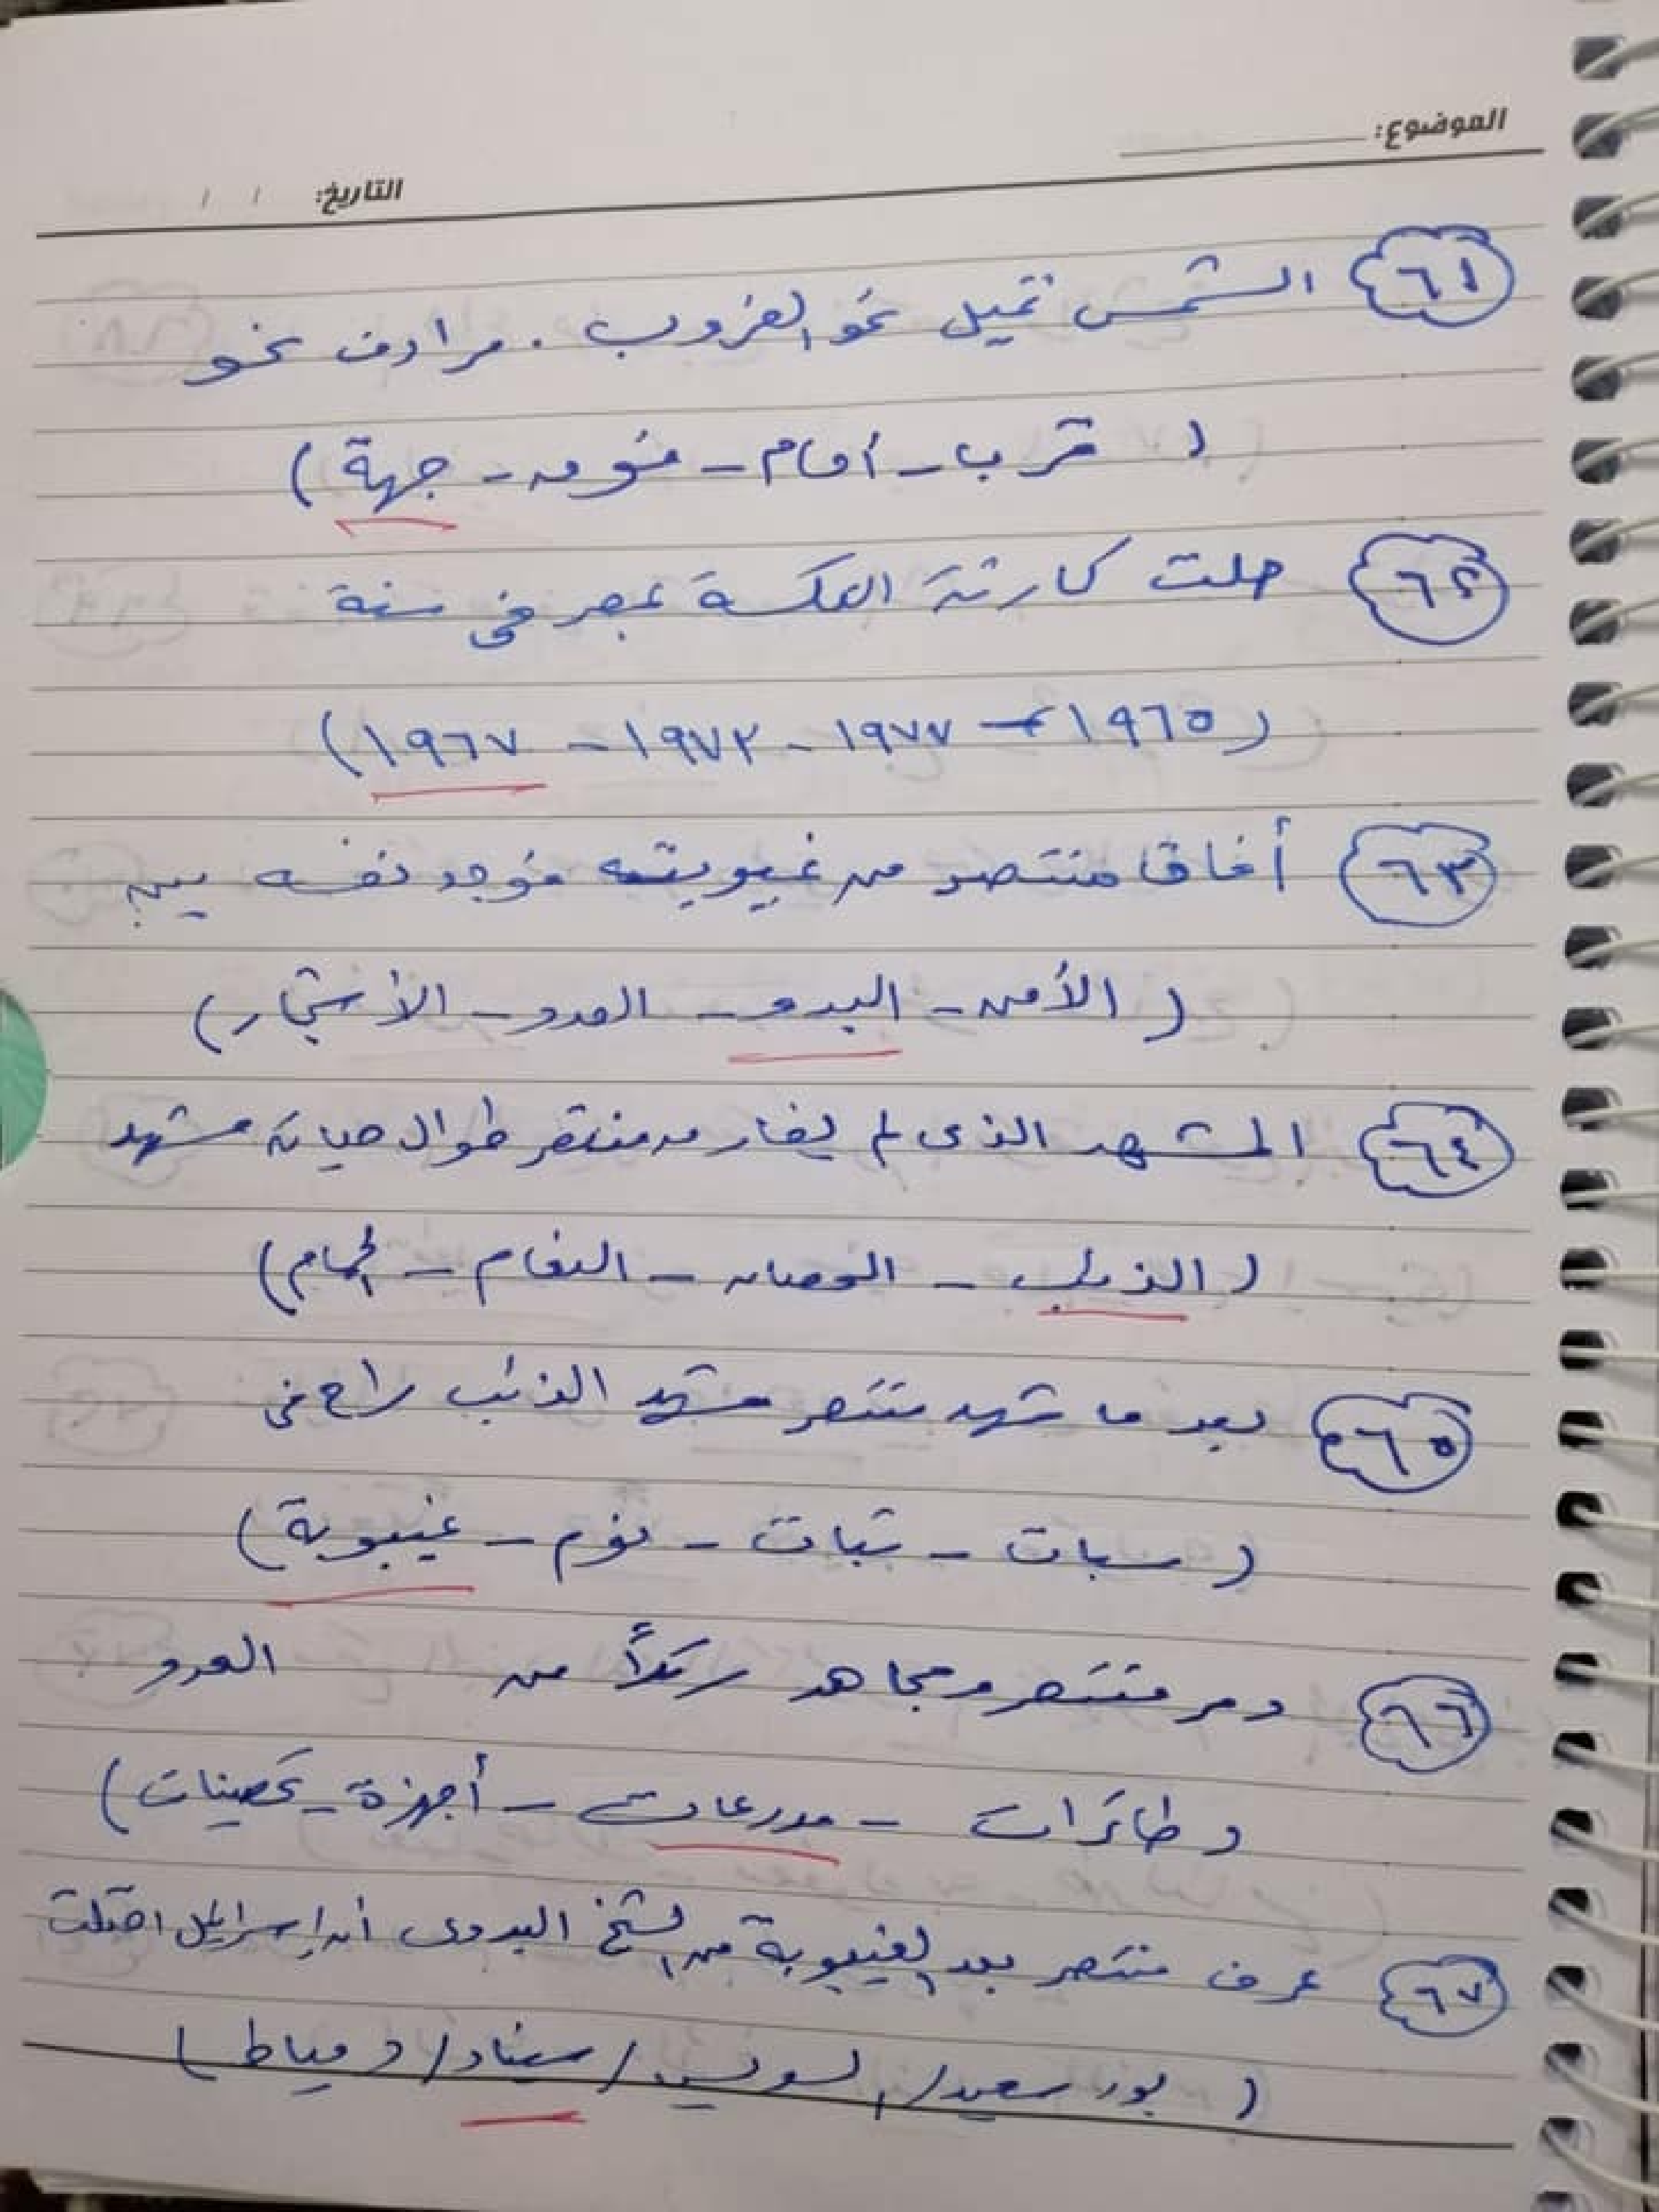 الموضوع:
التاريخ: / /
٦١ الشمس تميل نحو الغروب . مرادف نحو
( قرب - أمام - فوق - جهة )
٦٢ حلت كارثة النكسة بمصر فى سنة
( ١٩٦٥ - ١٩٧٧ - ١٩٧٣ - ١٩٦٧ )
٦٣ أفاق منتصر من غيبوبته فوجد نفسه بين
( الأمن - البدو - العدو - الأشجار )
٦٤ المشهد الذى لم يفارق منتصر طوال حياته مشهد
( الذئب - الحصان - النعام - الحمام )
٦٥ بعد ما شهد منتصر مشهد الذئب راح فى
( سبات - ثبات - نوم - غيبوبة )
٦٦ دمر منتصر ومجاهد رتلاً من العدو
( طائرات - مدرعات - أجهزة - تحصينات )
٦٧ عرف منتصر بعد الغيبوبة من الشيخ البدوى أن إسرائيل احتلت
( بور سعيد / السويس / سيناء / دمياط )